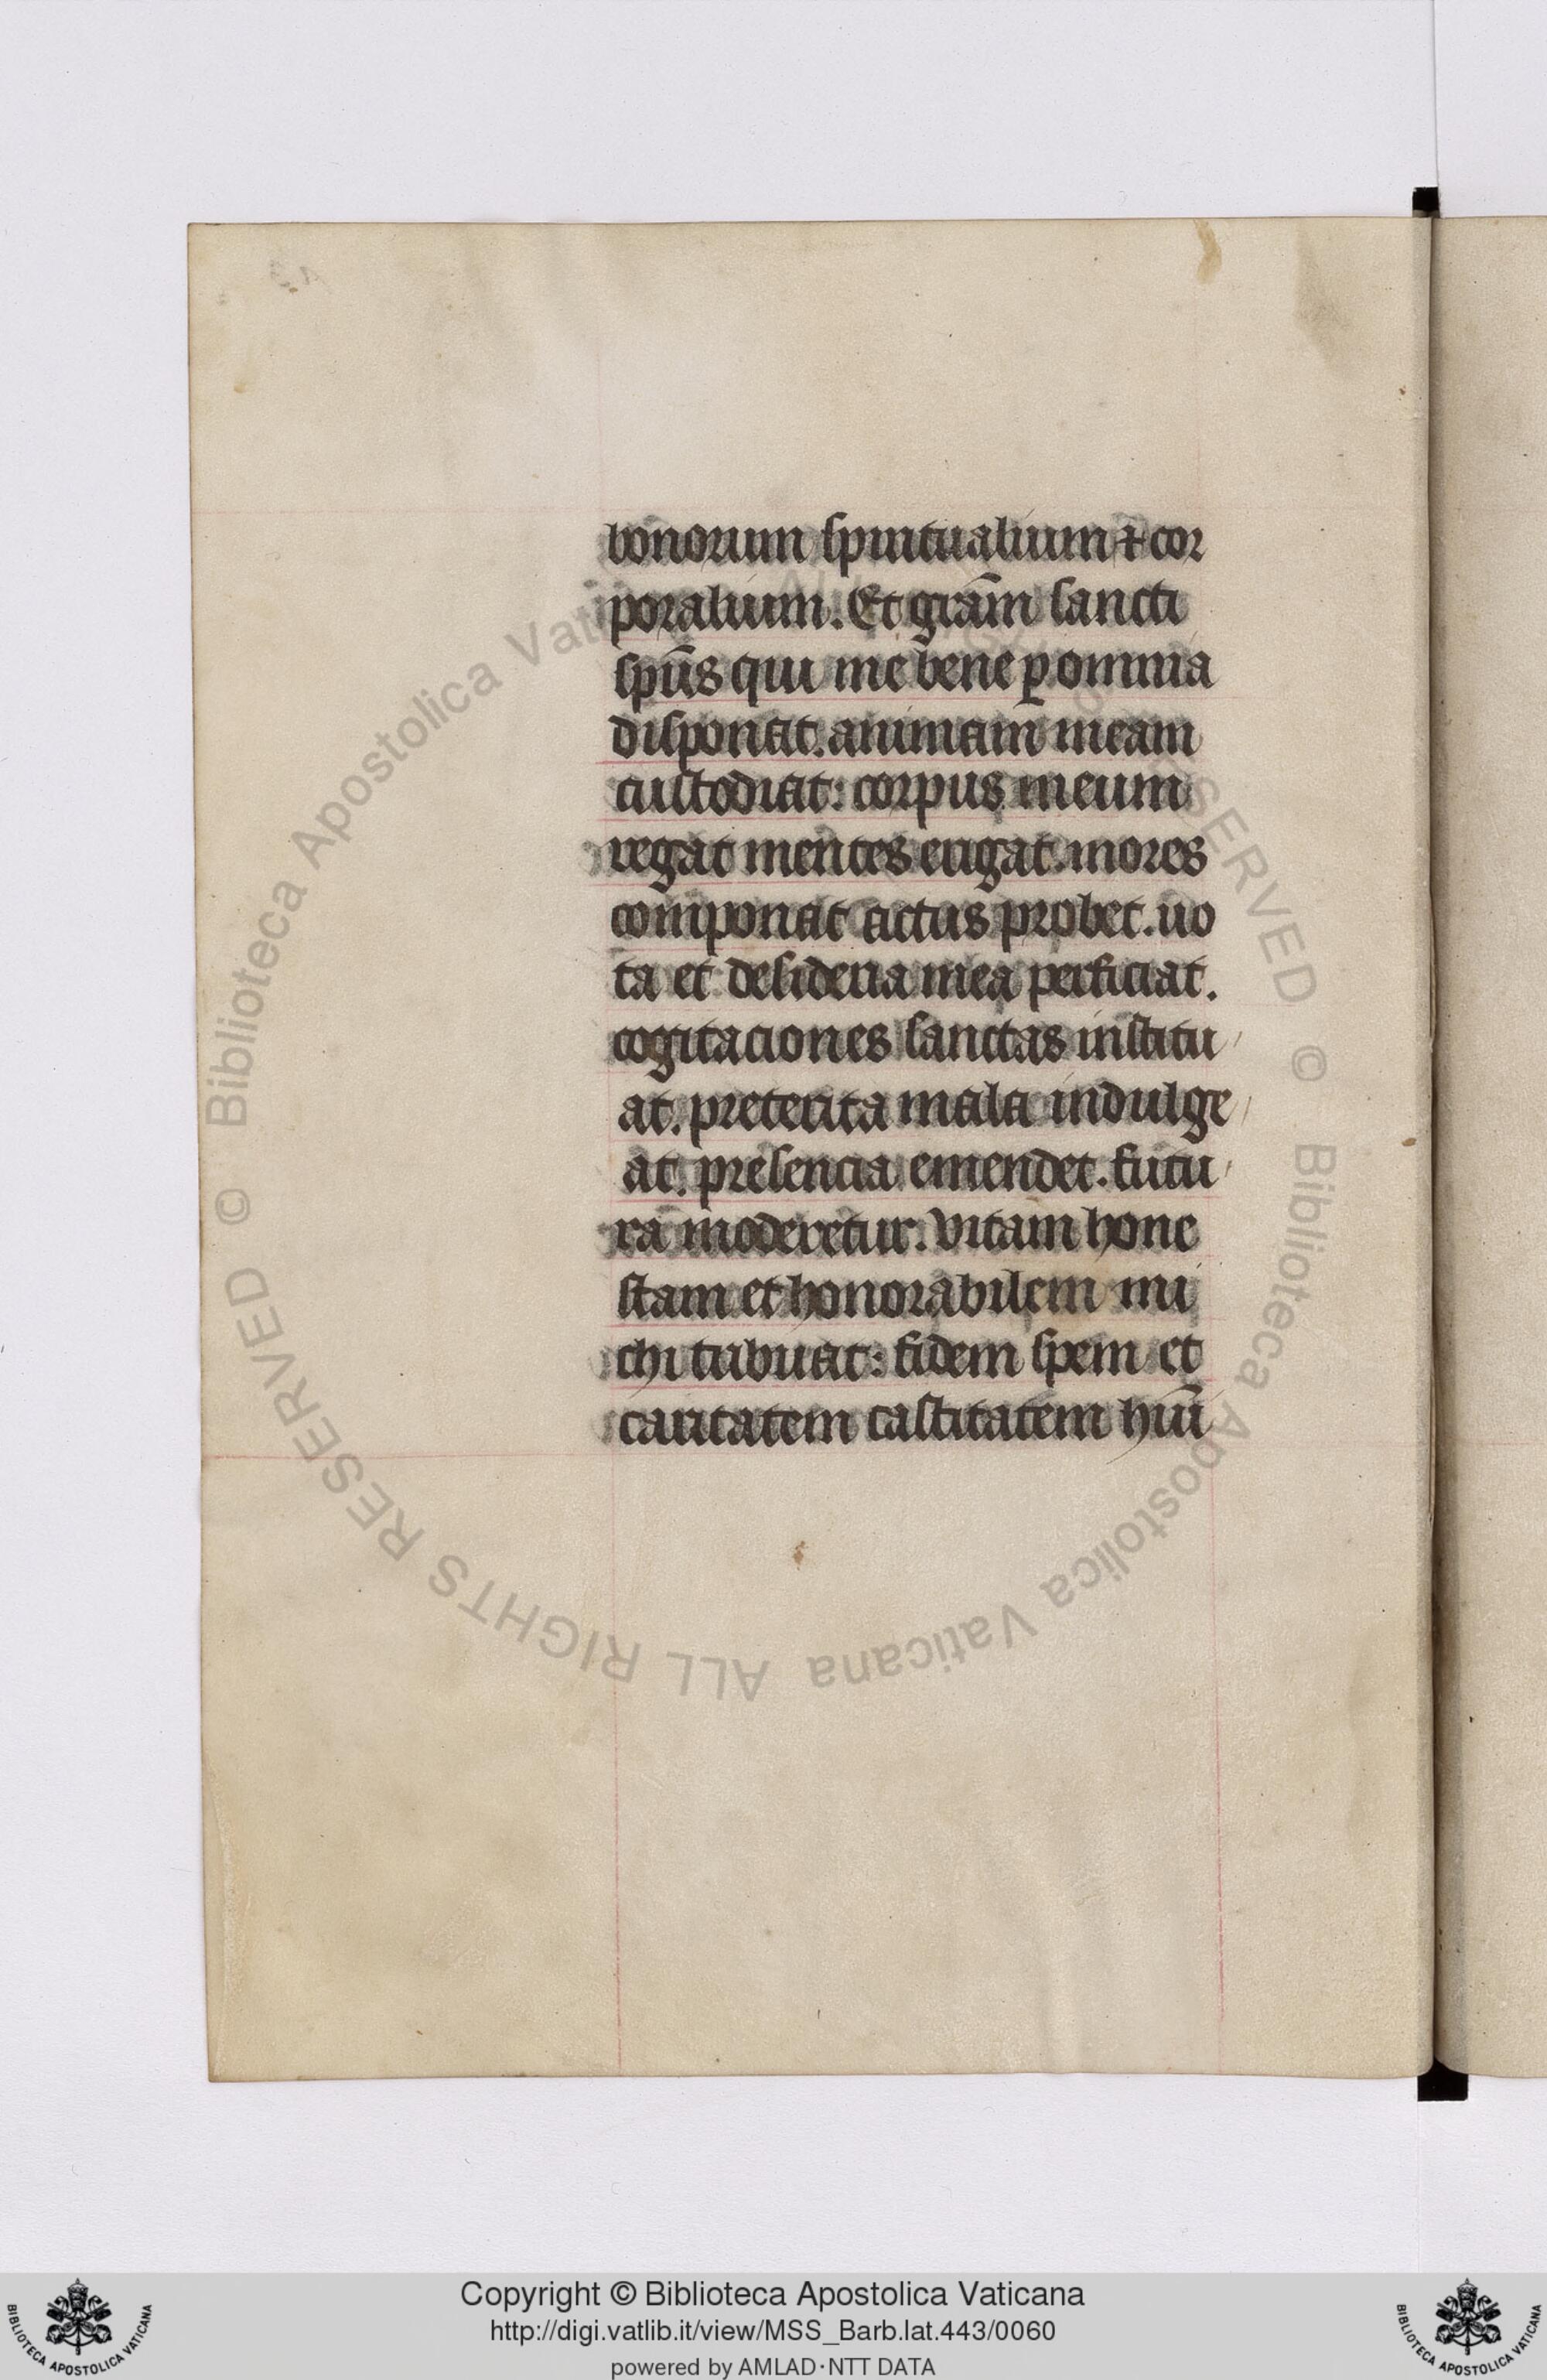 bonorum spiritualium ⁊ cor
poralium. Et gr̄am sancti
sp̄us qui me bene ꝑ omnia
disponat. animam meam
custodiat: corpus meum
regat mentes erigat. mores
componat actus probet. uo
ta et desideria mea perficiat.
cogitaciones sanctas institu
at. preterita mala indulge
at. presencia emendet. futu
ra moderetur. vitam hone
stam et honorabilem mi
chi tribuat: fidem spem et
caritatem castitatem hui̅
© Biblioteca Apostolica Vaticana ALL RIGHTS RESERVED © Biblioteca Apostolica Vaticana ALL RIGHTS RESERVED
Copyright © Biblioteca Apostolica Vaticana
http://digi.vatlib.it/view/MSS_Barb.lat.443/0060
powered by AMLAD·NTT DATA
BIBLIOTECA APOSTOLICA VATICANA
BIBLIOTECA APOSTOLICA VATICANA